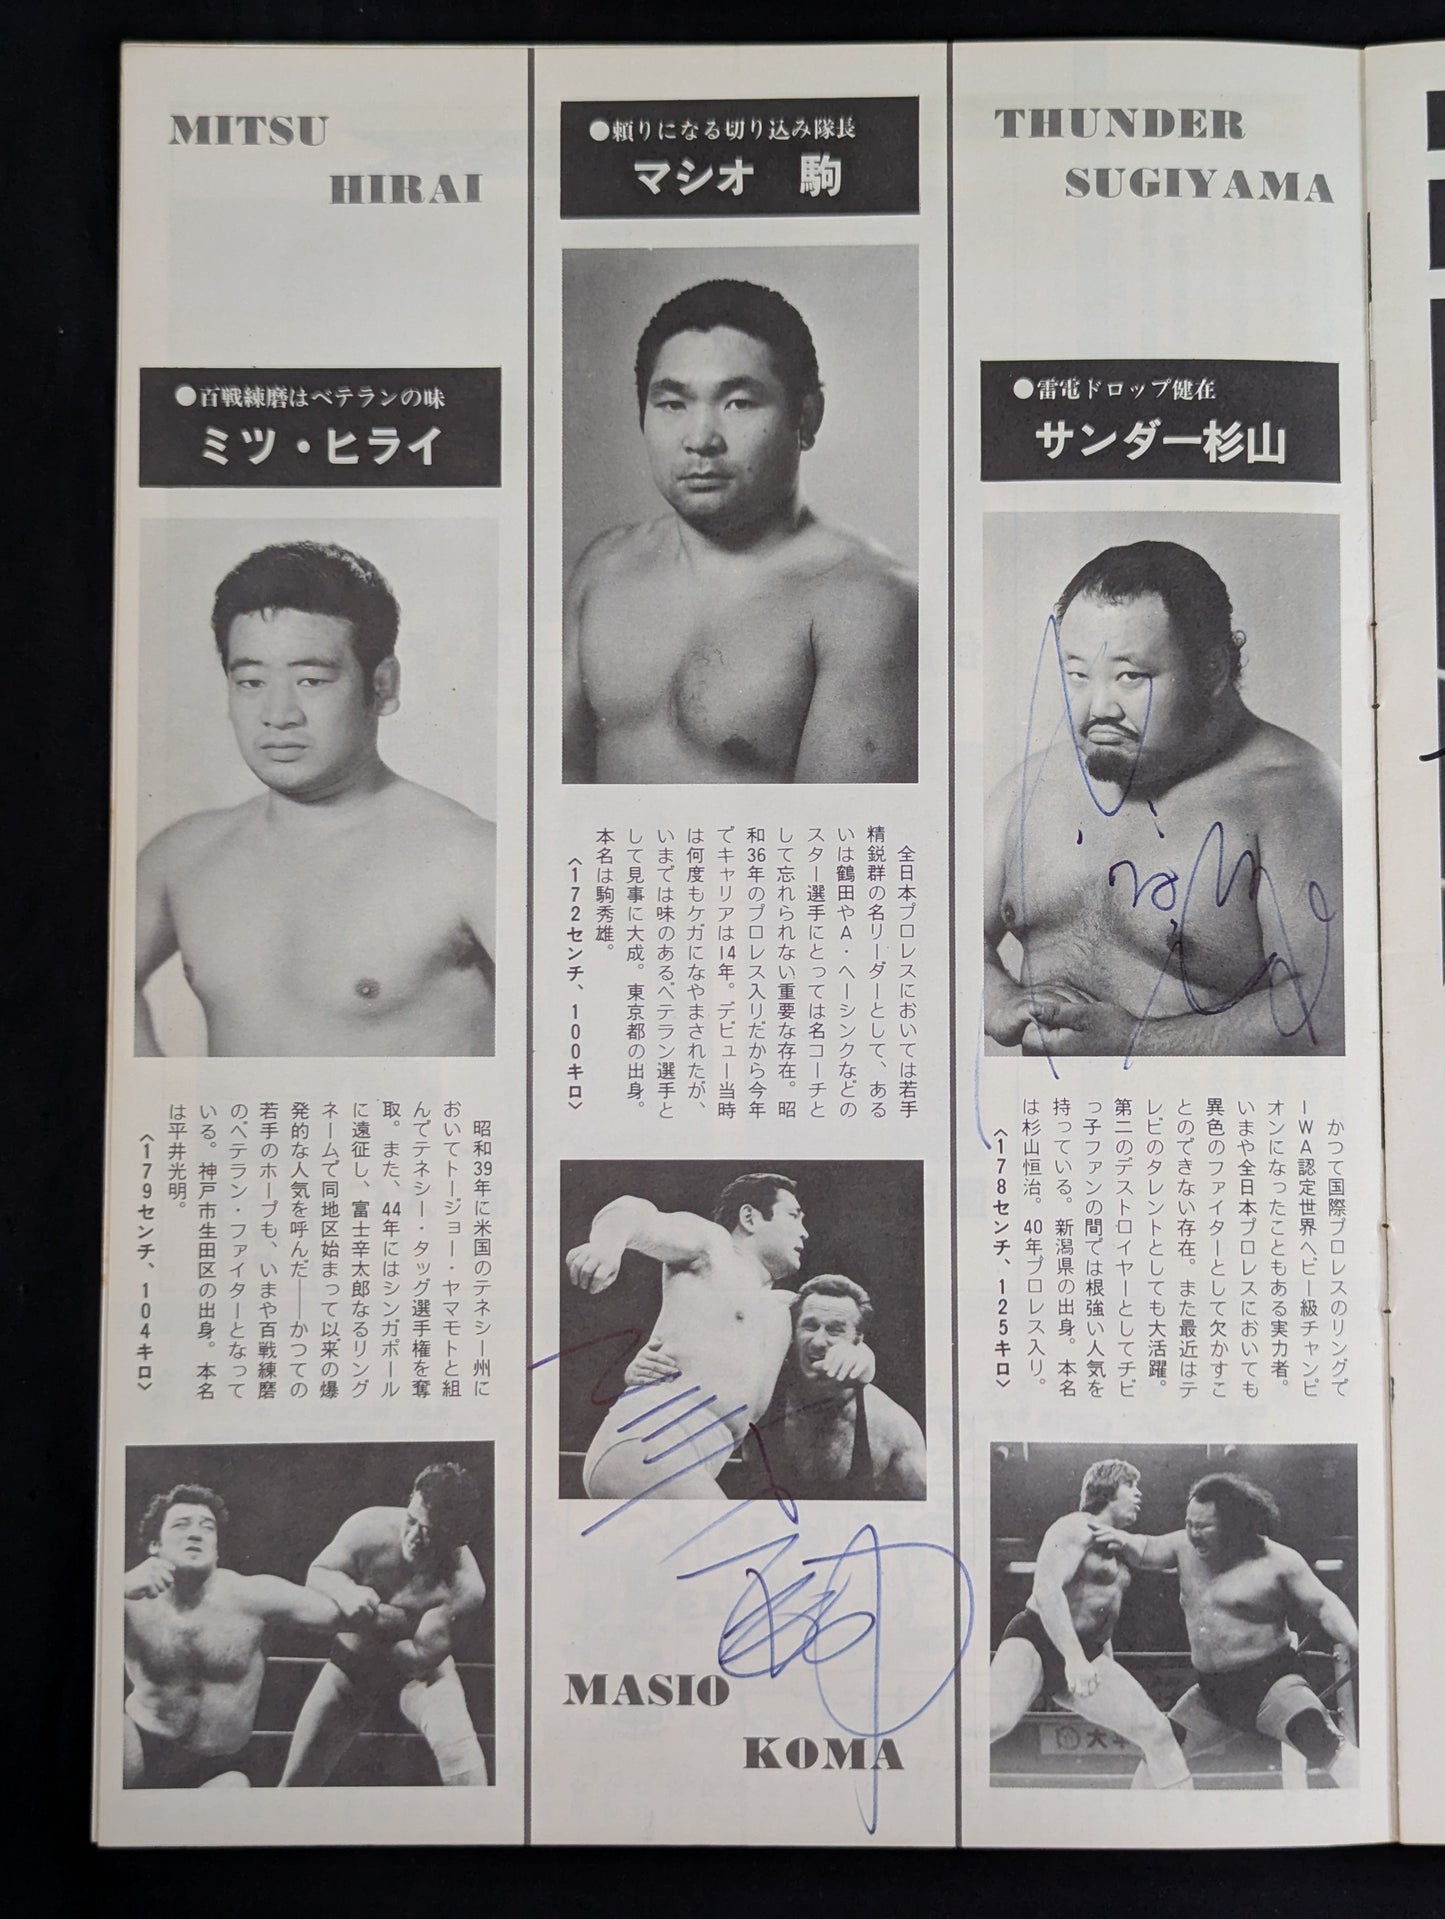 THUNDER
SUGIYAMA
●雷電ドロップ健在
サンダー杉山
かつて国際プロレスのリングで
IWA認定世界ヘビー級チャンピ
オンになったこともある実力者。
いまや全日本プロレスにおいても
異色のファイターとして欠かすこ
とのできない存在。また最近はテ
レビのタレントとしても大活躍。
第二のデストロイヤーとしてチビ
っ子ファンの間では根強い人気を
持っている。新潟県の出身。本名
は杉山恒治。40年プロレス入り。
〈178センチ、125キロ〉
●頼りになる切り込み隊長
マシオ 駒
全日本プロレスにおいては若手
精鋭群の名リーダーとして、ある
いは鶴田やA・ヘーシンクなどの
スター選手にとっては名コーチと
して忘れられない重要な存在。昭
和36年のプロレス入りだから今年
でキャリアは14年。デビュー当時
は何度もケガになやまされたが、
いまでは味のあるベテラン選手と
して見事に大成。東京都の出身。
本名は駒秀雄。
〈172センチ、100キロ〉
MASIO
KOMA
MITSU
HIRAI
●百戦練磨はベテランの味
ミツ・ヒライ
昭和39年に米国のテネシー州に
おいてトージョー・ヤマモトと組
んでテネシー・タッグ選手権を奪
取。また、44年にはシンガポール
に遠征し、富士辛太郎なるリング
ネームで同地区始まって以来の爆
発的な人気を呼んだ――かつての
若手のホープも、いまや百戦練磨
のベテラン・ファイターとなって
いる。神戸市生田区の出身。本名
は平井光明。
〈179センチ、104キロ〉